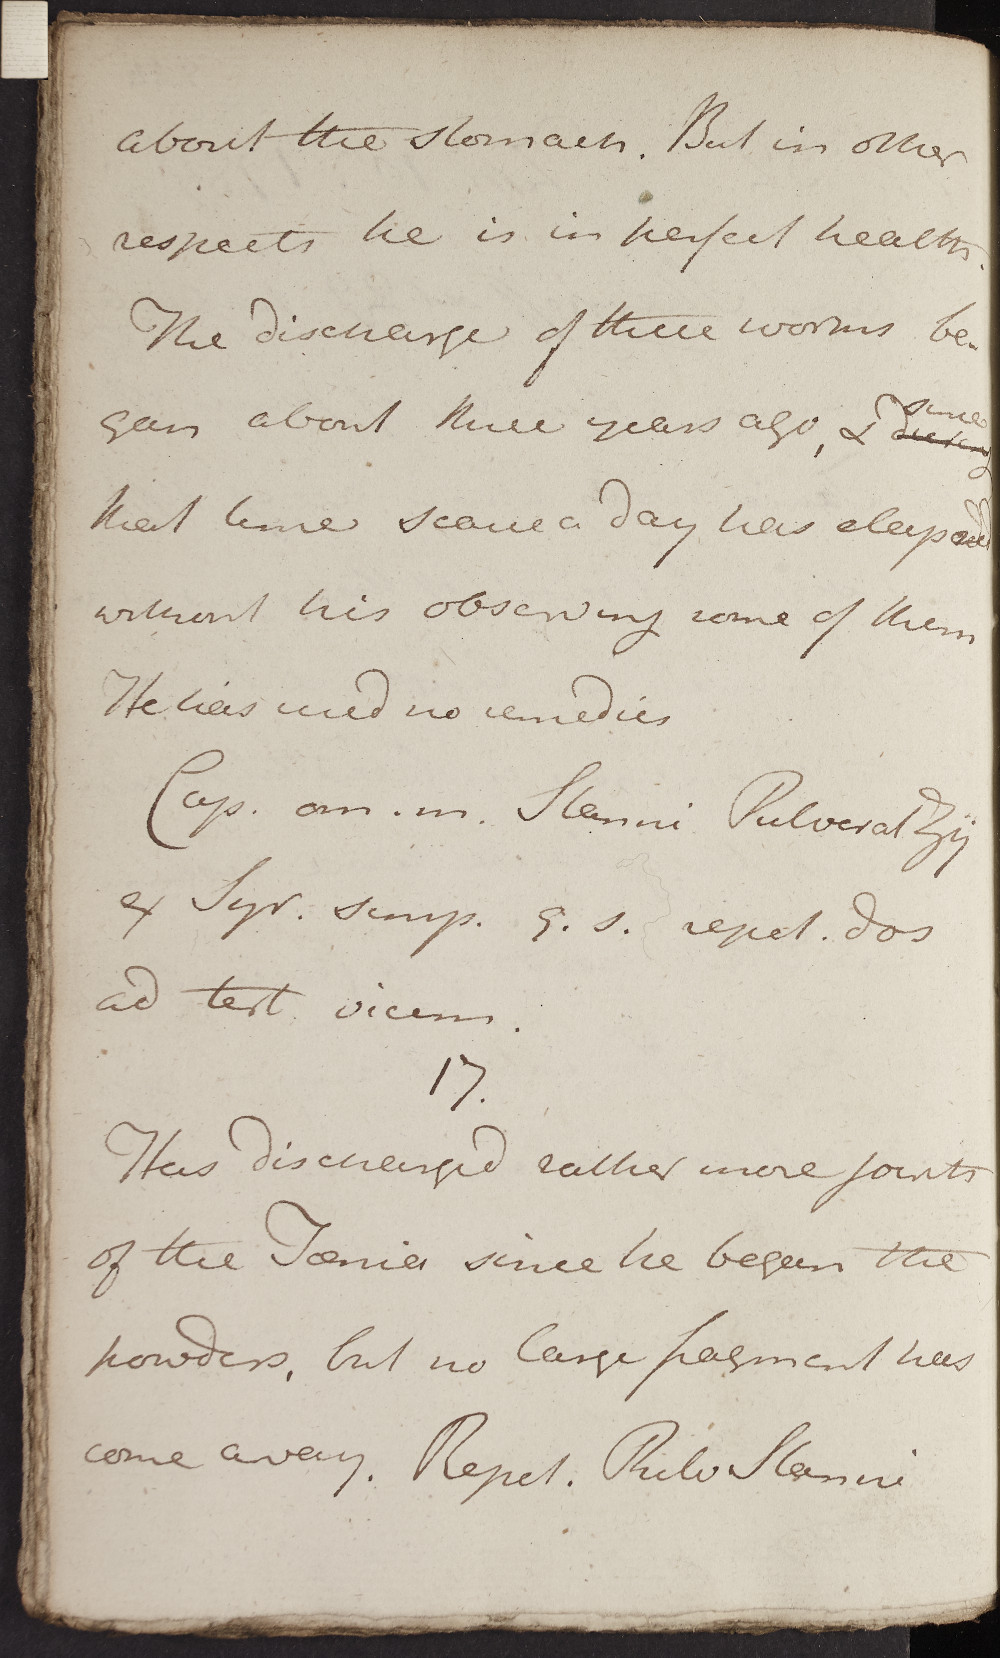 about the stomach. But in other
respects he is in perfect health.
The discharge of these worms be-
gan about three years ago, & since during
that time scarce a day has elapsed
without his observing some of them
He has used no remedies
Cap. om. m. Stanni Pulverat ℥ij
ex Syr. simp. q. s. repet. dos
ad tert vicem.
17.
Has discharg'd rather more joints
of the Tænia since he began the
powders, but no large fragment has
come away. Repet. Pulv Stanni